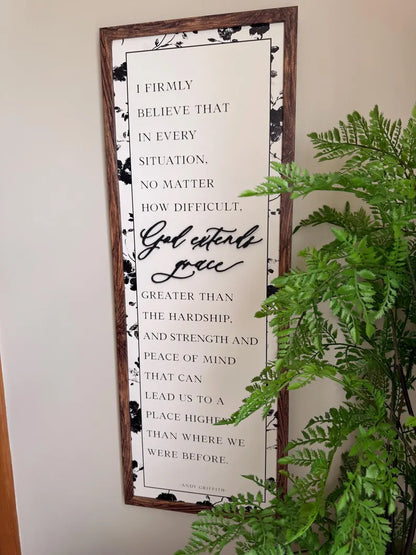 I FIRMLY
BELIEVE THAT
IN EVERY
SITUATION,
NO MATTER
HOW DIFFICULT,
God extends
grace
GREATER THAN
THE HARDSHIP,
AND STRENGTH AND
PEACE OF MIND
THAT CAN
LEAD US TO A
PLACE HIGHER
THAN WHERE WE
WERE BEFORE.
-ANDY GRIFFITH